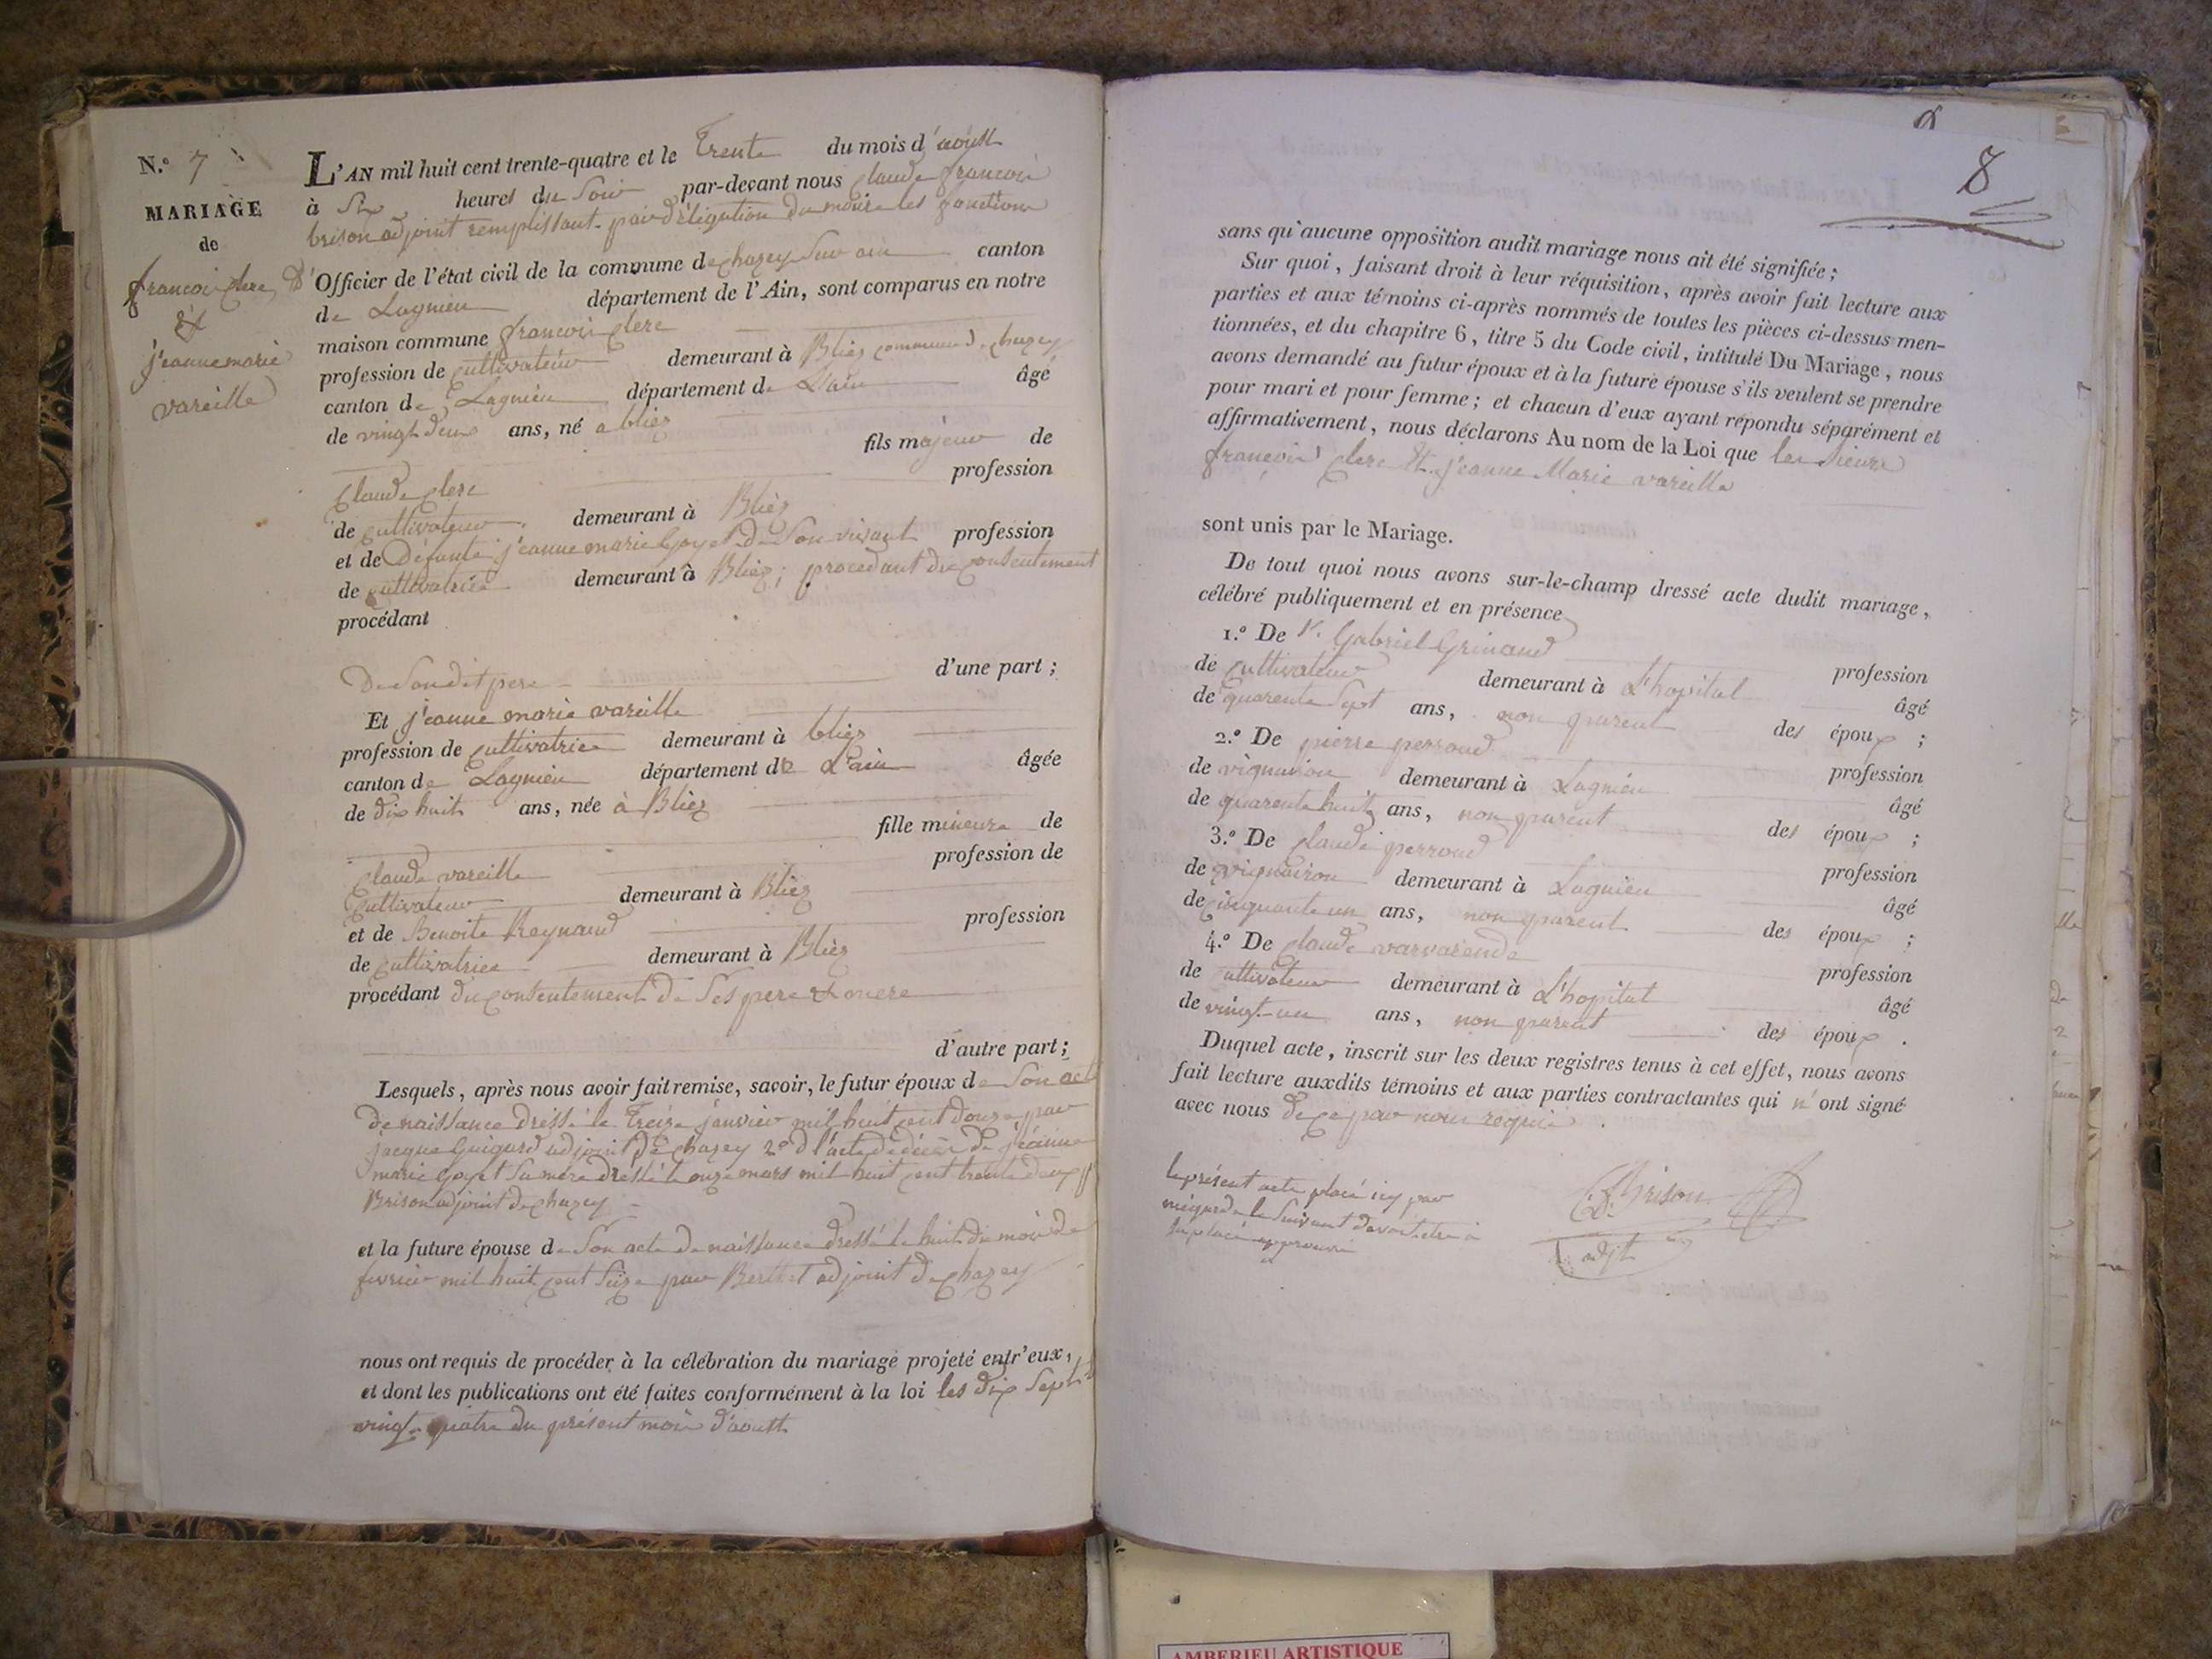 N.º 7
MARIAGE
de
francois clerc
&
jeanne marie
vareille
L'AN mil huit cent trente-quatre et le Trente du mois d'aoust
à Six heures du Soir par-devant nous claude françois
brison adjoint remplissant par déligation du maire les fonctions
d'Officier de l'état civil de la commune de chazey Sur ain canton
de Lagnieu département de l'Ain, sont comparus en notre
maison commune francois clerc
profession de cultivateur demeurant à Bliez commune d. chazey
canton de Lagnieu département de L'ain âgé
de vingt deux ans, né a bliez
fils majeur de
Claude clerc profession
de cultivateur demeurant à Bliez
et de Défunte jeanne marie Goyet de Son vivant profession
de cultivatrice demeurant à Bliez; procedant du consentement
procédant
De Son dit pere d'une part;
Et jeanne marie vareille
profession de cultivatrice demeurant à bliez
canton de Lagnieu département de L'ain âgée
de dix huit ans, née à Bliez
fille mineure de
Claude vareille profession de
Cultivateur demeurant à Bliez
et de Benoite Reynaud profession
de cultivatrice demeurant à Bliez
procédant du consentement de Ses pere & mere
d'autre part;
Lesquels, après nous avoir fait remise, savoir, le futur époux de Son acte
de naissance dressé le Treize janvier mil huit cent douze par
jacque Guigard adjoint de chazey 2º d l'acte de décès de jeanne
marie Goyet Sa mere dressé le onze mars mil huit cent trente deux
Brison adjoint de chazey
et la future épouse de Son acte de naissance dressé le huit du mois de
fevrier mil huit cent Seize par Berthet adjoint de chazey
nous ont requis de procéder à la célébration du mariage projeté entr'eux,
et dont les publications ont été faites conformément à la loi les dix Sept &
vingt quatre du présent mois d'aoust
8
sans qu'aucune opposition audit mariage nous ait été signifiée;
Sur quoi, faisant droit à leur réquisition, après avoir fait lecture aux
parties et aux témoins ci-après nommés de toutes les pièces ci-dessus men-
tionnées, et du chapitre 6, titre 5 du Code civil, intitulé Du Mariage, nous
avons demandé au futur époux et à la future épouse s'ils veulent se prendre
pour mari et pour femme; et chacun d'eux ayant répondu séparément et
affirmativement, nous déclarons Au nom de la Loi que les Sieurs
françois clerc Et jeanne Marie vareille
sont unis par le Mariage.
De tout quoi nous avons sur-le-champ dressé acte dudit mariage,
célébré publiquement et en présence
1.º De Sr. Gabriel Grinand profession
de cultivateur demeurant à L'hopital âgé
de quarente Sept ans, non parent des époux;
2.º De pierre perroud profession
de vigneron demeurant à Lagnieu âgé
de quarente huit ans, non parent des époux;
3.º De claude perroud profession
de vigneiron demeurant à Lagnieu âgé
de cinquante un ans, non parent des époux;
4.º De claude varvarende profession
de cultivateur demeurant à L'hopital âgé
de vingt-un ans, non parent des époux.
Duquel acte, inscrit sur les deux registres tenus à cet effet, nous avons
fait lecture auxdits témoins et aux parties contractantes qui n'ont signé
avec nous de ce par nous requis.
le présent acte placé icy par
mégarde le Suivant devant etre à
Sa place approuvé
Brison
adjt
AMBERIEU ARTISTIQUE